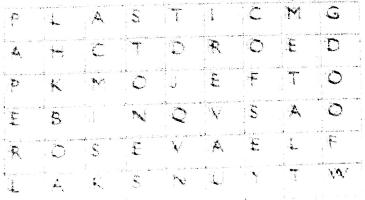 P L A S T I C M G
A H C T D R O E D
P K M O J E F T O
E B I N Q V S A O
R O S E V A E L F
L A K S N U Y T W